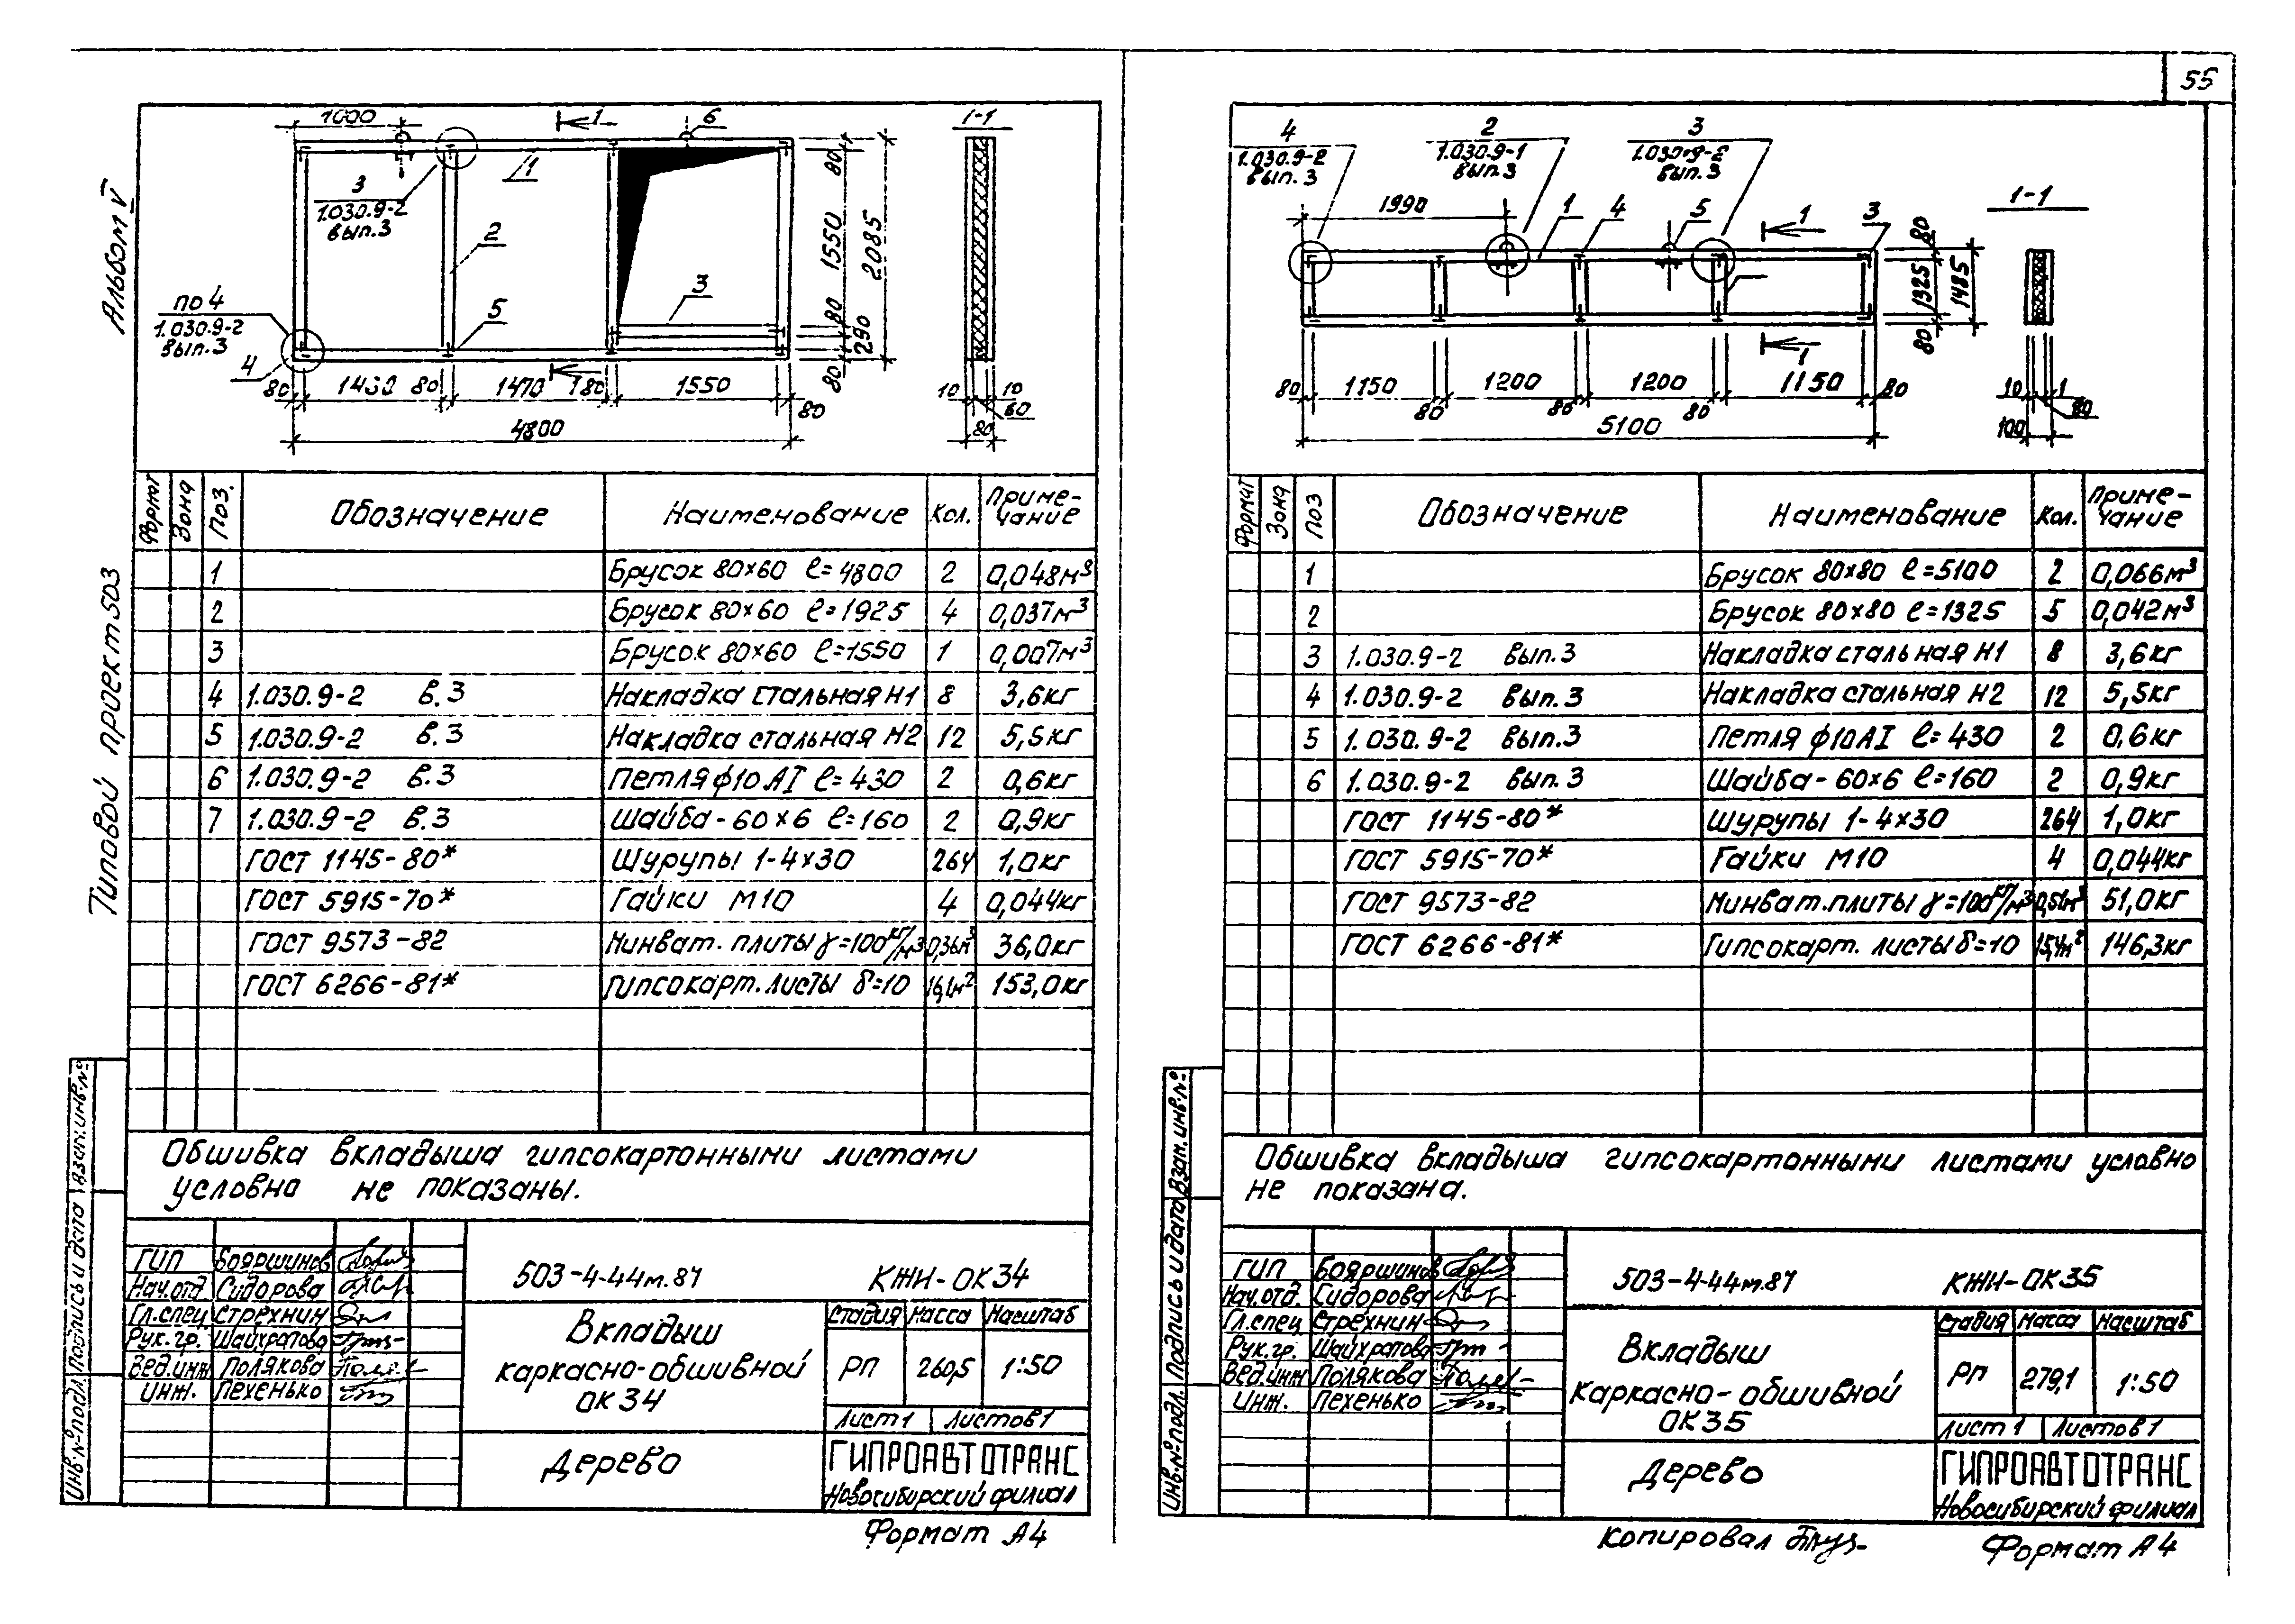 55
Альбом V
Типовой проект 503
1000
1
6
1-1
1
3
1.030.9-2
вып.3
2
по 4
1.030.9-2
вып.3
4
5
3
80
1550
2085
80
290
80
80
1430
80
1470
80
1550
80
4800
10
10
60
80
Формат
Зона
Поз.
Обозначение
Наименование
Кол.
Приме-
чание
1 Брусок 80×60 ℓ=4800 2 0,048м³
2 Брусок 80×60 ℓ=1925 4 0,037м³
3 Брусок 80×60 ℓ=1550 1 0,007м³
4 1.030.9-2 в.3 Накладка стальная Н1 8 3,6кг
5 1.030.9-2 в.3 Накладка стальная Н2 12 5,5кг
6 1.030.9-2 в.3 Петля ф10АI ℓ=430 2 0,6кг
7 1.030.9-2 в.3 Шайба-60×6 ℓ=160 2 0,9кг
ГОСТ 1145-80* Шурупы 1-4×30 264 1,0кг
ГОСТ 5915-70* Гайки М10 4 0,044кг
ГОСТ 9573-82 Минват. плиты γ=100кг/м3 0,36м³ 36,0кг
ГОСТ 6266-81* Гипсокарт. листы δ=10 16,1м² 153,0кг
Обшивка вкладыша гипсокартонными листами
условно не показаны.
Взам.инв.№
Подпись и дата
Инв.№подл.
ГИП Бояршинов
Нач.отд. Сидорова
Гл.спец Стрехнин
Рук.гр. Шайхратова
Вед.инж Полякова
Инж. Пехенько
503-4-44м.87
КЖИ-ОК34
Вкладыш
каркасно-обшивной
ОК34
Стадия Масса Масштаб
РП 260,5 1:50
Лист 1 Листов 1
Дерево
ГИПРОАВТОТРАНС
Новосибирский филиал
Формат А4
4
1.030.9-2
вып.3
2
1.030.9-1
вып.3
3
1.030.9-2
вып.3
1990
1
4
5
1
3
1-1
80
1325
1485
80
1
80
1150
80
1200
80
1200
80
1150
80
5100
10
1
80
100
Формат
Зона
Поз
Обозначение
Наименование
Кол.
Приме-
чание
1 Брусок 80×80 ℓ=5100 2 0,066м³
2 Брусок 80×80 ℓ=1325 5 0,042м³
3 1.030.9-2 вып.3 Накладка стальная Н1 8 3,6кг
4 1.030.9-2 вып.3 Накладка стальная Н2 12 5,5кг
5 1.030.9-2 вып.3 Петля ф10АI ℓ=430 2 0,6кг
6 1.030.9-2 вып.3 Шайба-60×6 ℓ=160 2 0,9кг
ГОСТ 1145-80* Шурупы 1-4×30 264 1,0кг
ГОСТ 5915-70* Гайки М10 4 0,044кг
ГОСТ 9573-82 Минват.плиты γ=100кг/м3 0,51м³ 51,0кг
ГОСТ 6266-81* Гипсокарт. листы δ=10 15,4м² 146,3кг
Обшивка вкладыша гипсокартонными листами условно
не показана.
Взам.инв.№
Подпись и дата
Инв.№подл.
ГИП Бояршинов
Нач.отд. Сидорова
Гл.спец Стрехнин
Рук.гр. Шайхратова
Вед.инж Полякова
Инж. Пехенько
503-4-44м.87
КЖИ-ОК35
Вкладыш
каркасно-обшивной
ОК35
Стадия Масса Масштаб
РП 279,1 1:50
Лист 1 Листов 1
Дерево
ГИПРОАВТОТРАНС
Новосибирский филиал
Копировал
Формат А4